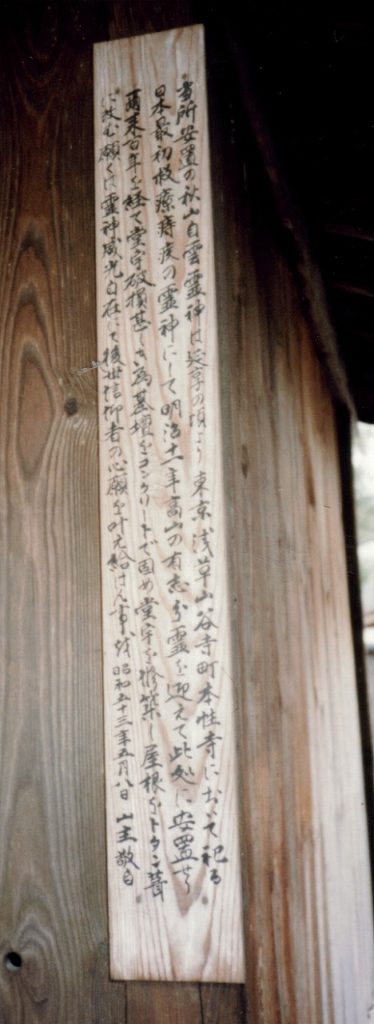 当所安置の秋山自雲霊神は延享の頃より東京浅草山谷寺町本性寺において祀る
日本最初救療痔疾の霊神にして明治十一年高山の有志分霊を迎えて此処に安置せり
爾来百年を経て堂宇破損甚しき為墓壇をコンクリートで固め堂宇を修築し屋根をトタン葺
に改む願くは霊神威光自在にして後世信仰者の心願を叶え給はん事を 昭和五十三年五月八日 山主敬白